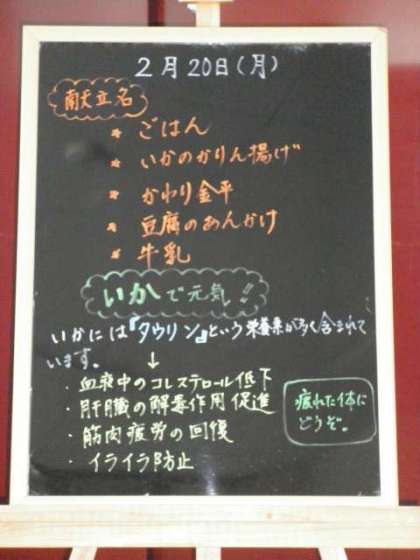 2月20日(月)
献立名
* ごはん
* いかのかりん揚げ
* かわり金平
* 豆腐のあんかけ
* 牛乳
いかで元気!!
いかには『タウリン』という栄養素が多く含まれて
います。
↓
・血液中のコレステロール低下
・肝臓の解毒作用促進
・筋肉疲労の回復
・イライラ防止
疲れた体に
どうぞ。